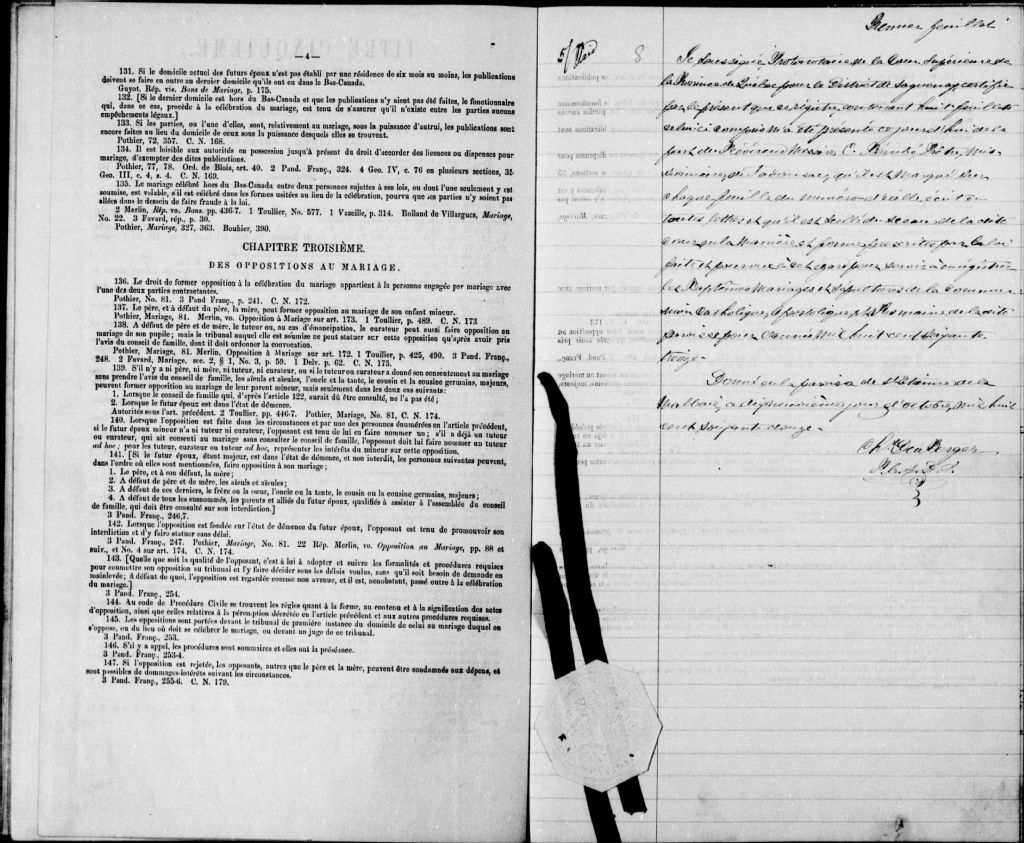 —4—
131. Si le domicile actuel des futurs époux n'est pas établi par une résidence de six mois au moins, les publications
doivent se faire en outre au dernier domicile qu'ils ont eu dans le Bas-Canada.
Guyot. Rép. vis. Bans de Mariage, p. 175.
132. [Si le dernier domicile est hors du Bas-Canada et que les publications n'y aient pas été faites, le fonctionnaire
qui, dans ce cas, procède à la célébration du mariage, est tenu de s'assurer qu'il n'existe entre les parties aucuns
empêchements légaux.]
133. Si les parties, ou l'une d'elles, sont, relativement au mariage, sous la puissance d'autrui, les publications sont
encore faites au lieu du domicile de ceux sous la puissance desquels elles se trouvent.
Pothier, 72, 357. C. N. 168.
134. Il est loisible aux autorités en possession jusqu'à présent du droit d'accorder des licences ou dispenses pour
mariage, d'exempter des dites publications.
Pothier, 77, 78. Ord. de Blois, art. 40. 2 Pand. Franç., 324. 4 Geo. IV, c. 76 en plusieurs sections, 35
Geo. III, c. 4, s. 4. C. N. 169.
135. Le mariage célébré hors du Bas-Canada entre deux personnes sujettes à ses lois, ou dont l'une seulement y est
soumise, est valable, s'il est célébré dans les formes usitées au lieu de la célébration, pourvu que ses parties n'y soient pas
allées dans le dessein de faire fraude à la loi.
2 Merlin, Rép. vo. Bans. pp. 436-7. 1 Toullier, No. 577. 1 Vazeille, p. 314. Rolland de Villargues, Mariage,
No. 22. 3 Favard, rép., p. 30.
Pothier, Mariage, 327, 363. Bouhier, 390.
CHAPITRE TROISIÈME.
DES OPPOSITIONS AU MARIAGE.
136. Le droit de former opposition à la célébration du mariage appartient à la personne engagée par mariage avec
l'une des deux parties contractantes.
Pothier, No. 81. 3 Pand Franç., p. 241. C. N. 172.
137. Le père, et à défaut du père, la mère, peut former opposition au mariage de son enfant mineur.
Pothier, Mariage, 81. Merlin, vo. Opposition à Mariage sur art. 173. 1 Toullier, p. 489. C. N. 173
138. A défaut de père et de mère, le tuteur ou, au cas d'émancipation, le curateur peut aussi faire opposition au
mariage de son pupile; mais le tribunal auquel elle est soumise ne peut statuer sur cette opposition qu'après avoir pris
l'avis du conseil de famille, dont il doit ordonner la convocation.
Pothier, Mariage, 81. Merlin, Opposition à Mariage sur art. 172. 1 Touillier, p. 425, 490. 3 Pand. Franç.,
248. 2 Favard, Mariage, sec. 2, § 1, No. 3, p. 59. 1 Delv. p. 62. C. N. 175.
139. S'il n'y a ni père, ni mère, ni tuteur, ni curateur, ou si le tuteur ou curateur a donné son consentement au mariage
sans prendre l'avis du conseil de famille, les aïeuls et aïeules, l'oncle et la tante, le cousin et la cousine germains, majeurs,
peuvent former opposition au mariage de leur parent mineur, mais seulement dans les deux cas suivants:
1. Lorsque le conseil de famille qui, d'après l'article 122, aurait dû être consulté, ne l'a pas été;
2. Lorsque le futur époux est dans l'état de démence.
Autorités sous l'art. précédent. 2 Toullier, pp. 446-7. Pothier, Mariage, No. 81, C. N. 174.
140. Lorsque l'opposition est faite dans les circonstances et par une des personnes énumérées en l'article précédent,
si le futur époux mineur n'a ni tuteur ni curateur, l'opposant est tenu de lui en faire nommer un; s'il a déjà un tuteur
ou curateur, qui ait consenti au mariage sans consulter le conseil de famille, l'opposant doit lui faire nommer un tuteur
ad hoc; pour les tuteur, curateur ou tuteur ad hoc, représenter les intérêts du mineur sur cette opposition.
141. [Si le futur époux, étant majeur, est dans l'état de démence, et non interdit, les personnes suivantes peuvent,
dans l'ordre où elles sont mentionnées, faire opposition à son mariage;
1. Le père, et à son défaut, la mère;
2. A défaut de père et de mère, les aïeuls et aïeules;
3. A défaut de ces derniers, le frère ou la sœur, l'oncle ou la tante, le cousin ou la cousine germains, majeurs;
4. A défaut de tous les susnommés, les parents et alliés du futur époux, qualifiés à assister à l'assemblée du conseil
de famille, qui doit être consulté sur son interdiction.]
3 Pand. Franç., 246,7.
142. Lorsque l'opposition est fondée sur l'état de démence du futur époux, l'opposant est tenu de promouvoir son
interdiction et d'y faire statuer sans délai.
3 Pand. Franç., 247. Pothier, Mariage, No. 81. 22 Rép. Merlin, vo. Opposition au Mariage, pp. 88 et
suiv., et No. 4 sur art. 174. C. N. 174.
143. [Quelle que soit la qualité de l'opposant, c'est à lui à adopter et suivre les formalités et procédures requises
pour soumettre son opposition au tribunal et l'y faire décider sous les délais voulus, sans qu'il soit besoin de demande en
mainlevée; à défaut de quoi, l'opposition est regardée comme non avenue, et il est, nonobstant, passé outre à la célébration
du mariage.]
3 Pand. Franç., 254.
144. Au code de Procédure Civile se trouvent les règles quant à la forme, au contenu et à la signification des actes
d'opposition, ainsi que celles relatives à la péremption décrétée en l'article précédent et aux autres procédures requises.
145. Les oppositions sont portées devant le tribunal de première instance du domicile de celui au mariage duquel on
s'oppose, ou du lieu où doit se célébrer le mariage, ou devant un juge de ce tribunal.
3 Pand. Franç., 253.
146. S'il y a appel, les procédures sont sommaires et elles ont la préséance.
3 Pand. Franç., 253-4.
147. Si l'opposition est rejetée, les opposants, autres que le père et la mère, peuvent être condamnés aux dépens, et
sont passibles de dommages-intérêts suivant les circonstances.
3 Pand. Franç., 255-6. C. N. 179.
Premier feuillet
8
Je soussigné, Protonotaire de la Cour Supérieure de
la Province de Québec pour le District de Saguenay certifie
par le présent que ce registre, contenant huit feuillets
celui ci compris m'a été présenté ce jourd'hui de la
part du Révérend Messire C. Prêtre, Mis-
sionnaire, de Tadousac, qu'il est marqué sur
chaque feuille du numéro d'icelle écrit en
toutes lettres et qu'il est scellé du sceau de la dite
cour en la manière et forme prescrites par la loi
faite et pourvue à cet égard pour servir à enrégistrer
les Baptêmes Mariages et sépultures de la Commu-
nion Catholique, apostolique, et Romaine de la dite
paroisse pour l'année Mil huit cent soixante
treize.
Donné en la paroisse de St Etienne de la
Malbaie, ce jour d'octobre, Mil huit
cent soixante douze.